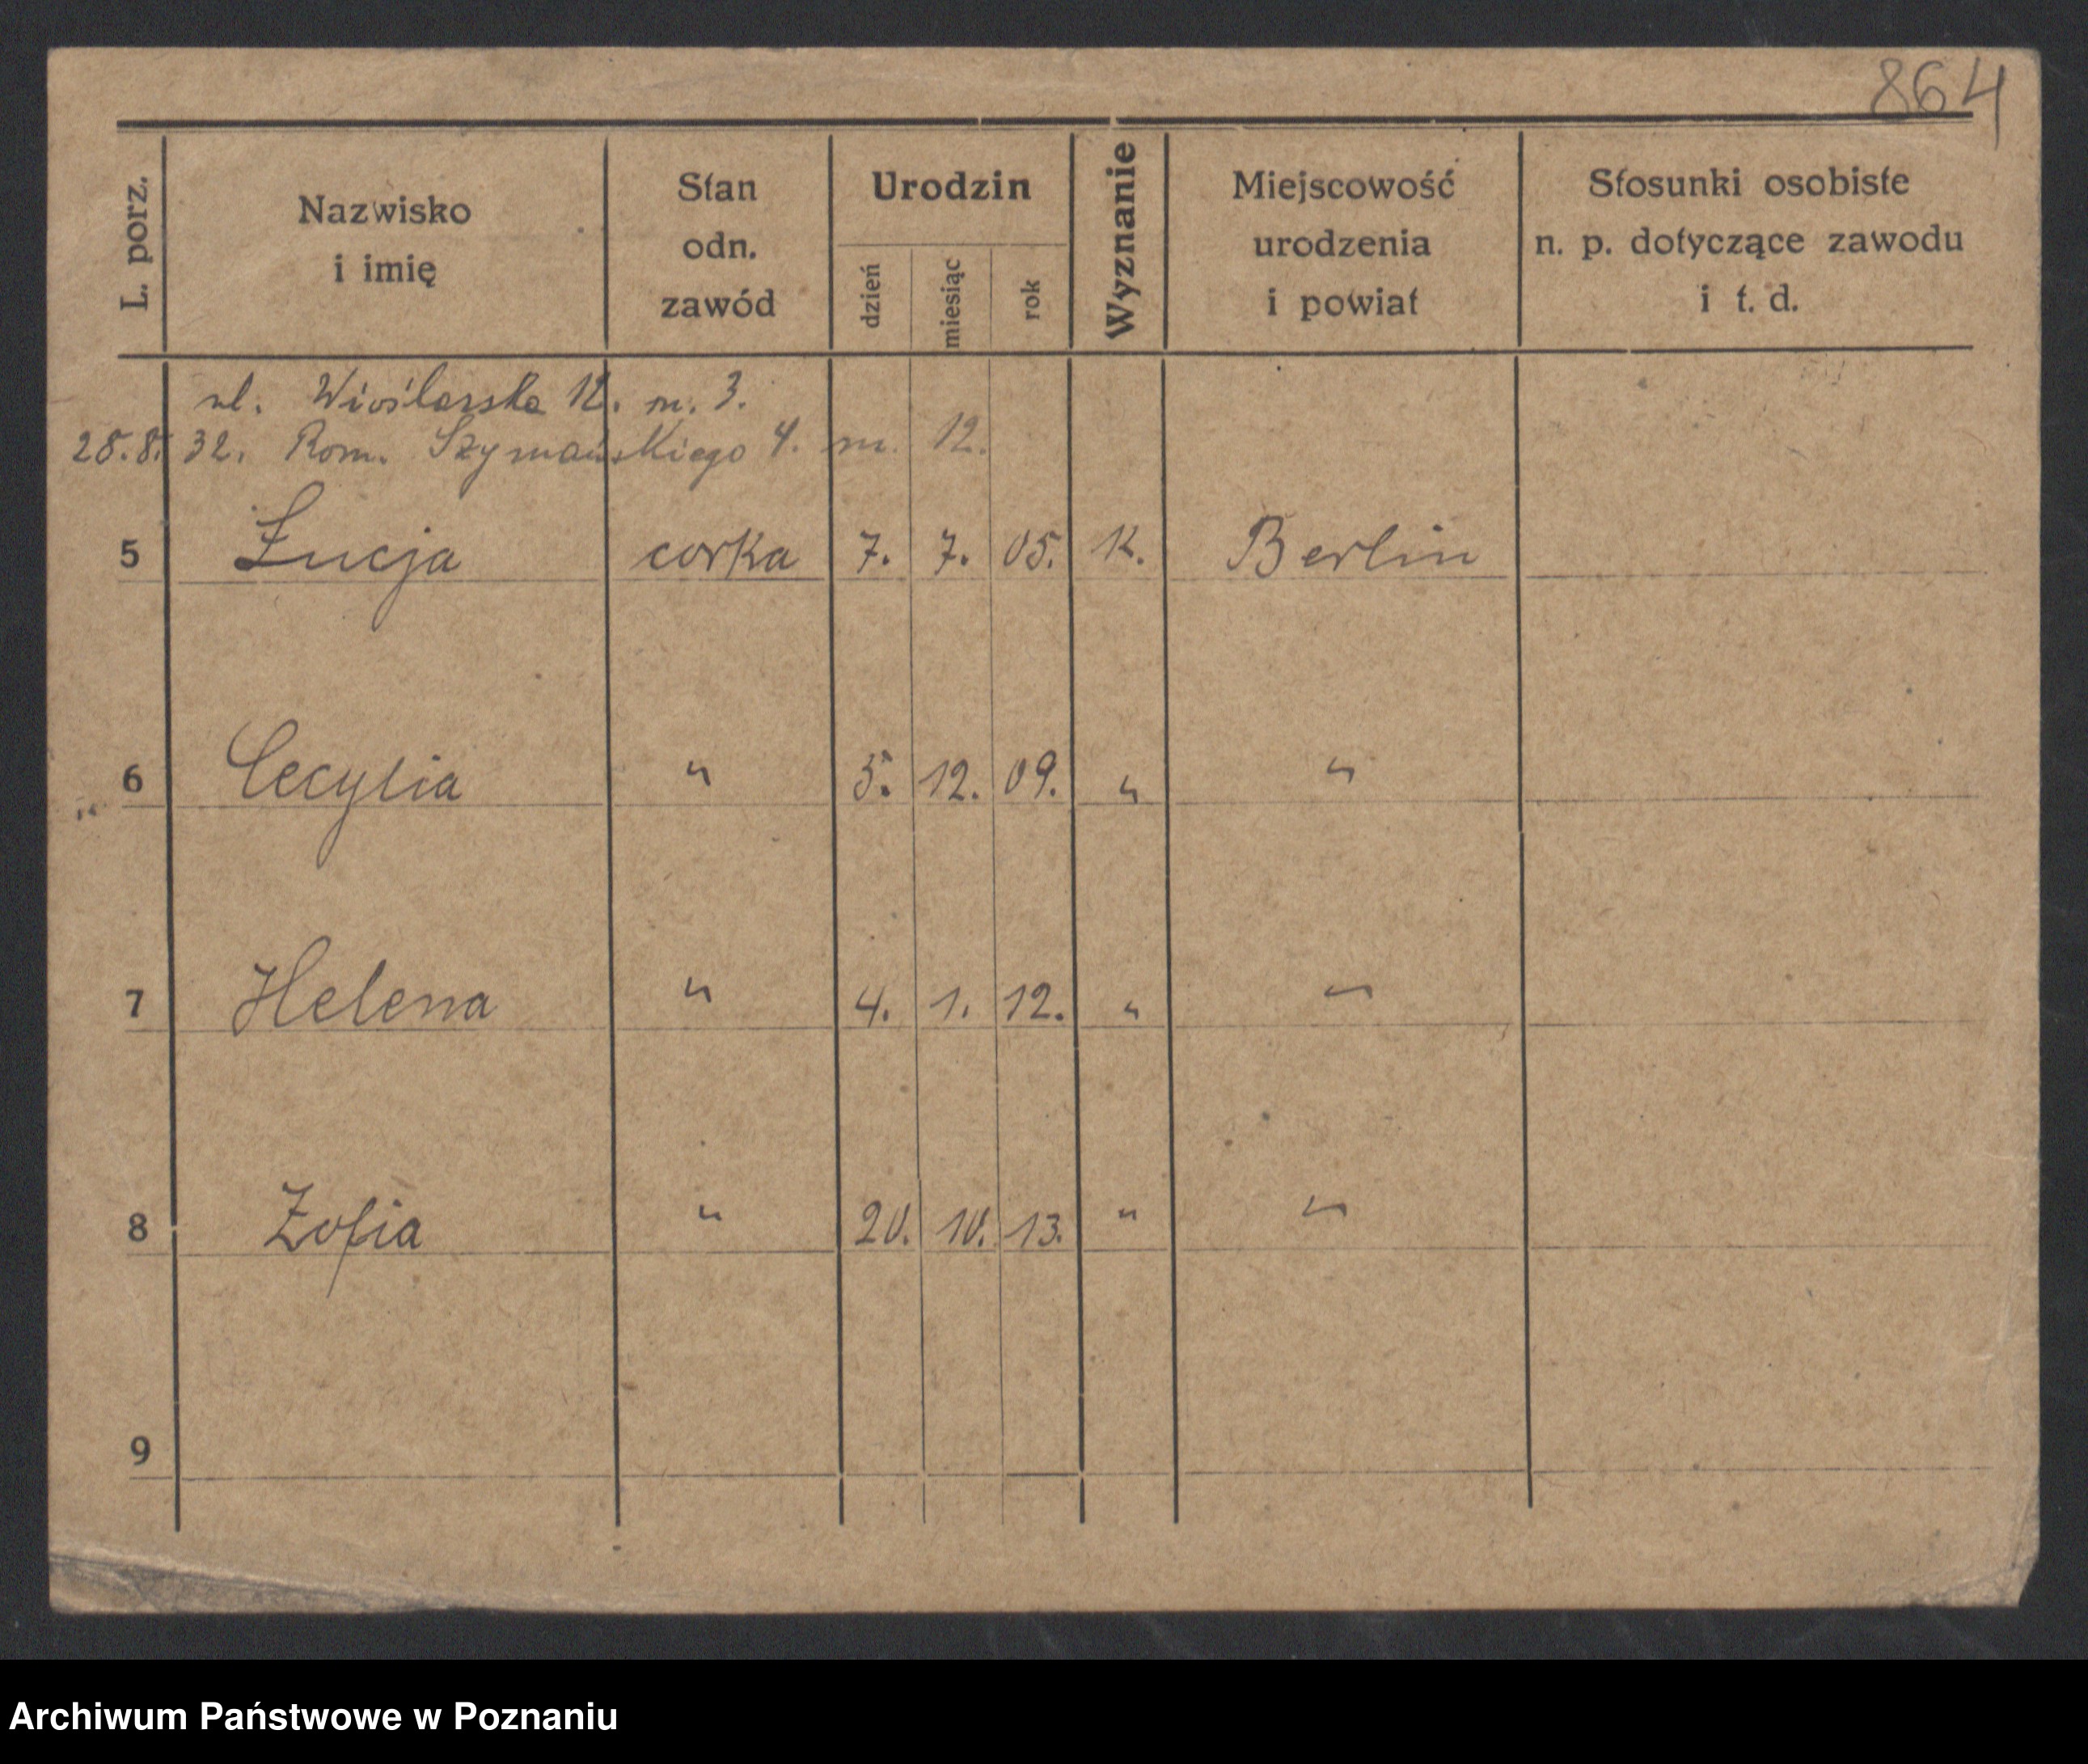 864
L. porz.
Nazwisko
i imię
Stan
odn.
zawód
Urodzin
dzień
miesiąc
rok
Wyznanie
Miejscowość
urodzenia
i powiat
Stosunki osobiste
n. p. dotyczące zawodu
i t. d.
ul. Wioślarska 12. m. 3.
28.8. 32. Rom. Szymańskiego 4. m. 12.
5 Łucja corka 7. 7. 05. K. Berlin
6 Cecylia " 5. 12. 09. " "
7 Helena " 4. 1. 12. " "
8 Zofia " 20. 10. 13. " "
9
Archiwum Państwowe w Poznaniu